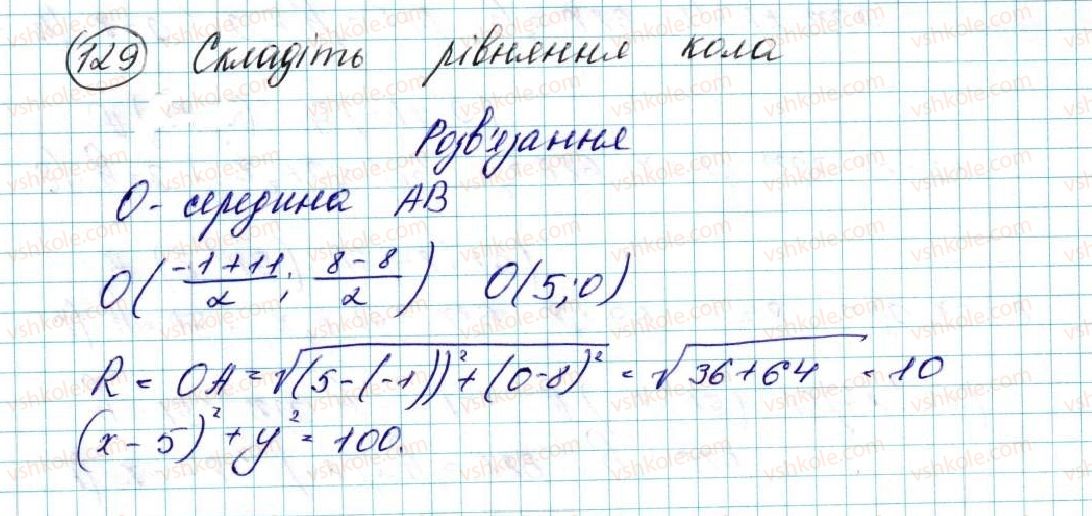 129 Складіть рівняння кола
Розв'язання
О - середина АВ
О(-1+11/2; 8-8/2) О(5;0)
R = OA = √(5-(-1))²+(0-8)² = √36+64 = 10
(x-5)²+y² = 100.